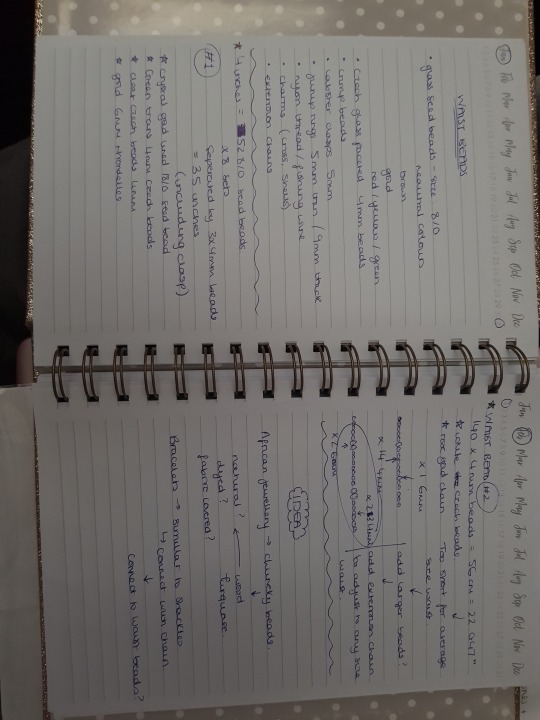 Jan Feb Mar Apr May Jun Jul Aug Sep Oct Nov Dec
WAIST BEADS
• glass seed beads - size 8/0
neautral colours
brown
gold
red / yellow / green
• Czech glass faceted 4mm beads
• crimp beads
• lobster clasps 5mm
• jump rings 5mm / 9mm thick
• nylon thread / fishing wire
• charms (cross, shells)
• extension chains
* 4 inches = 52 8/0 bead beads
x 8 sets
#1
Seperated by 3x4mm beads
= 35 inches
(including clasp)
* crystal gold lined 8/0 seed bead
* Green trans 4mm czech beads
* clear czech beads 4mm
* gold 6mm rhondelles
Jan Feb Mar Apr May Jun Jul Aug Sep Oct Nov Dec
* WAIST BEAD #2
140 x 4mm beads = 56cm = 22.047"
* white czech beads
* rose gold chain Too short for average
size waist
x 1 6mm
add larger beads?
x 14 4mm
add extension chain
to adjust to any size
waist.
x 2 6mm
IDEA
African jewellery → chuncky beads.
natural? ← wood
dyed? turquoise
fabric covered?
Bracelets → simular to shackles
↳ connect with chain
connect to waist beads?